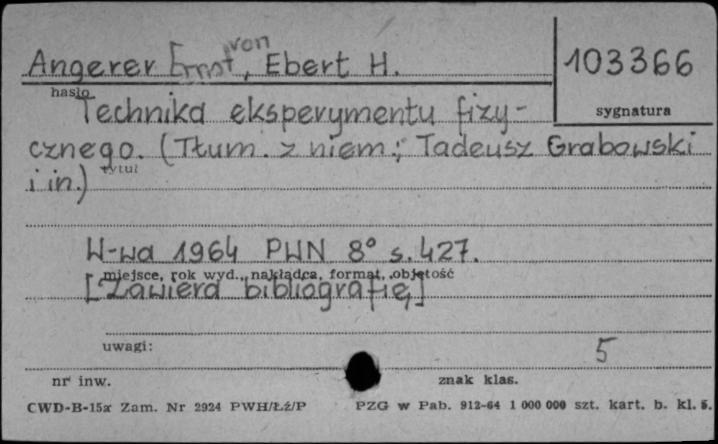 von
Angerer Ernst, Ebert H. 103366
hasło sygnatura
Technika eksperymentu fizy-
cznego. (Tłum. z niem.; Tadeusz Grabowski
tytuł
i in.)
W-wa 1964 PWN 8° s. 427.
miejsce, rok wyd., nakładca, format, objętość
[Zawiera bibliografię]
uwagi: 5
nr inw. znak klas.
CWD-B-15a Zam. Nr 2924 PWH/Łź/P PZG w Pab. 912-64 1 000 000 szt. kart. b. kl. 5.